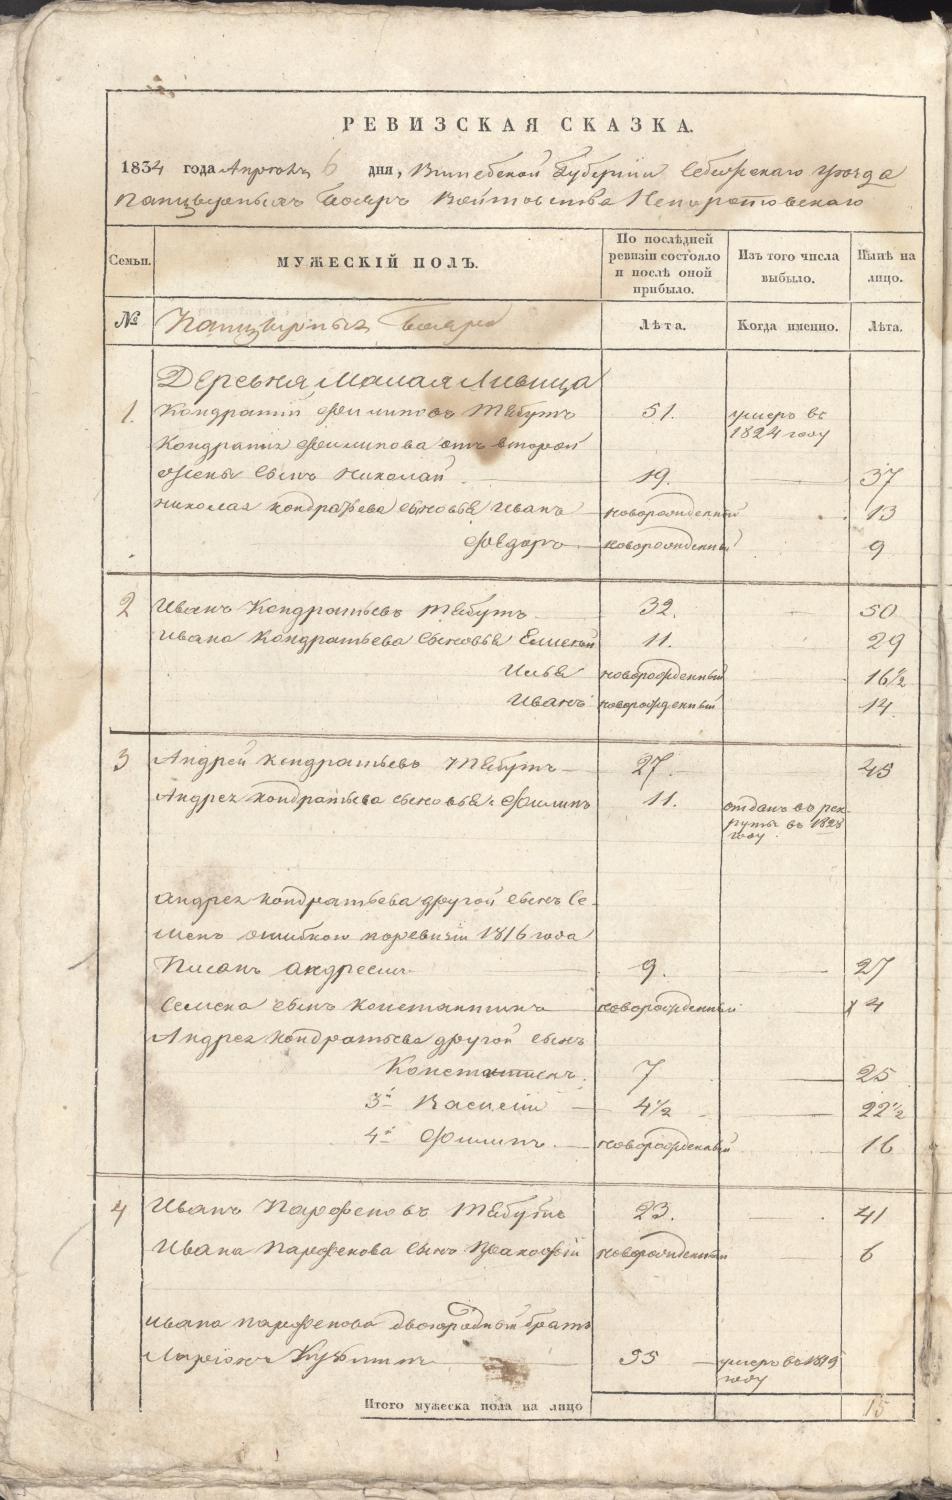 РЕВИЗСКАЯ СКАЗКА.
1834 года Апреля 6 дня, Витебской Губернии Себежскаго уезда
Панцырныхъ Бояръ Войтовства Непоротовскаго
Семьи. МУЖЕСКІЙ ПОЛЪ. По послѣдней ревизіи состояло и послѣ оной прибыло. Изъ того числа выбыло. Нынѣ на лицо.
№ Панцырныхъ Бояръ Лѣта. Когда именно. Лѣта.
Деревня Малая
1. Кондратий Филиповъ 51. умеръ въ 1824 году
Кондратия Филипова отъ второй
жены сынъ Николай 19. 37
Николая Кондратьева сыновья Иванъ новорожденный 13
Ѳедоръ новорожденный 9
2 Иванъ Кондратьевъ 32. 50
Ивана Кондратьева сыновья Елисей 11. 29
Илья новорожденный 16½
Иванъ новорожденный 14
3 Андрей Кондратьевъ 27. 45
Андрея Кондратьева сыновья Филипъ 11. отданъ въ рекруты въ 1828 году
Андрея Кондратьева другой сынъ Се-
менъ ошибкою по ревизіи 1816 года
Писанъ Андреемъ 9. 27
Семена сынъ Константинъ новорожденный 4
Андрея Кондратьева другой сынъ
Константинъ 7 25
3й Василій 4½ 22½
4й Филипъ новорожденный 16
4 Иванъ Парфеновъ 23. 41
Ивана Парфенова сынъ новорожденный 6
Ивана Парфенова двоюродный братъ
Ларіонъ 55 умеръ въ 1819 году
Итого мужеска пола на лицо 15